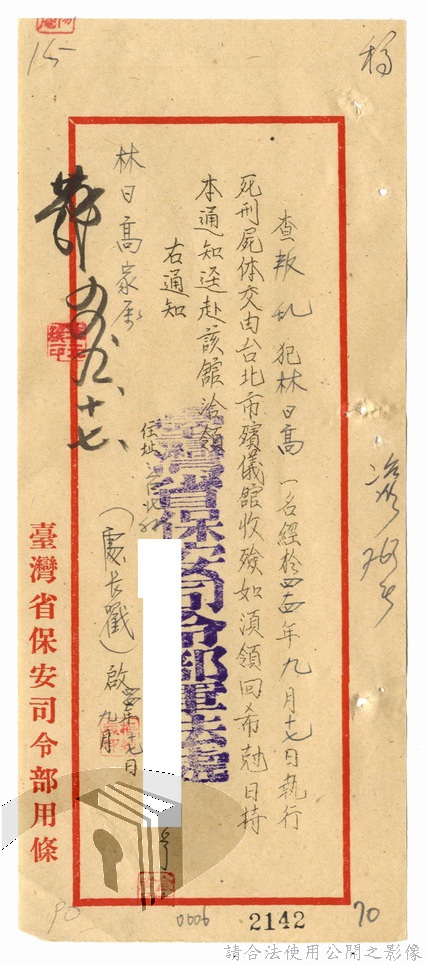 稿
15
查叛乱犯林日高一名經於四四年九月十七日執行
死刑屍体交由台北市殯儀館收殮如須領回希尅日持
本通知逕赴該館洽領
右通知
林日高家屬
住址台北
臺灣省保安司令部軍法處
(處長戳)啟
九月十七日
九、十七、
臺灣省保安司令部用條
90
0006
2142
70
請合法使用公開之影像